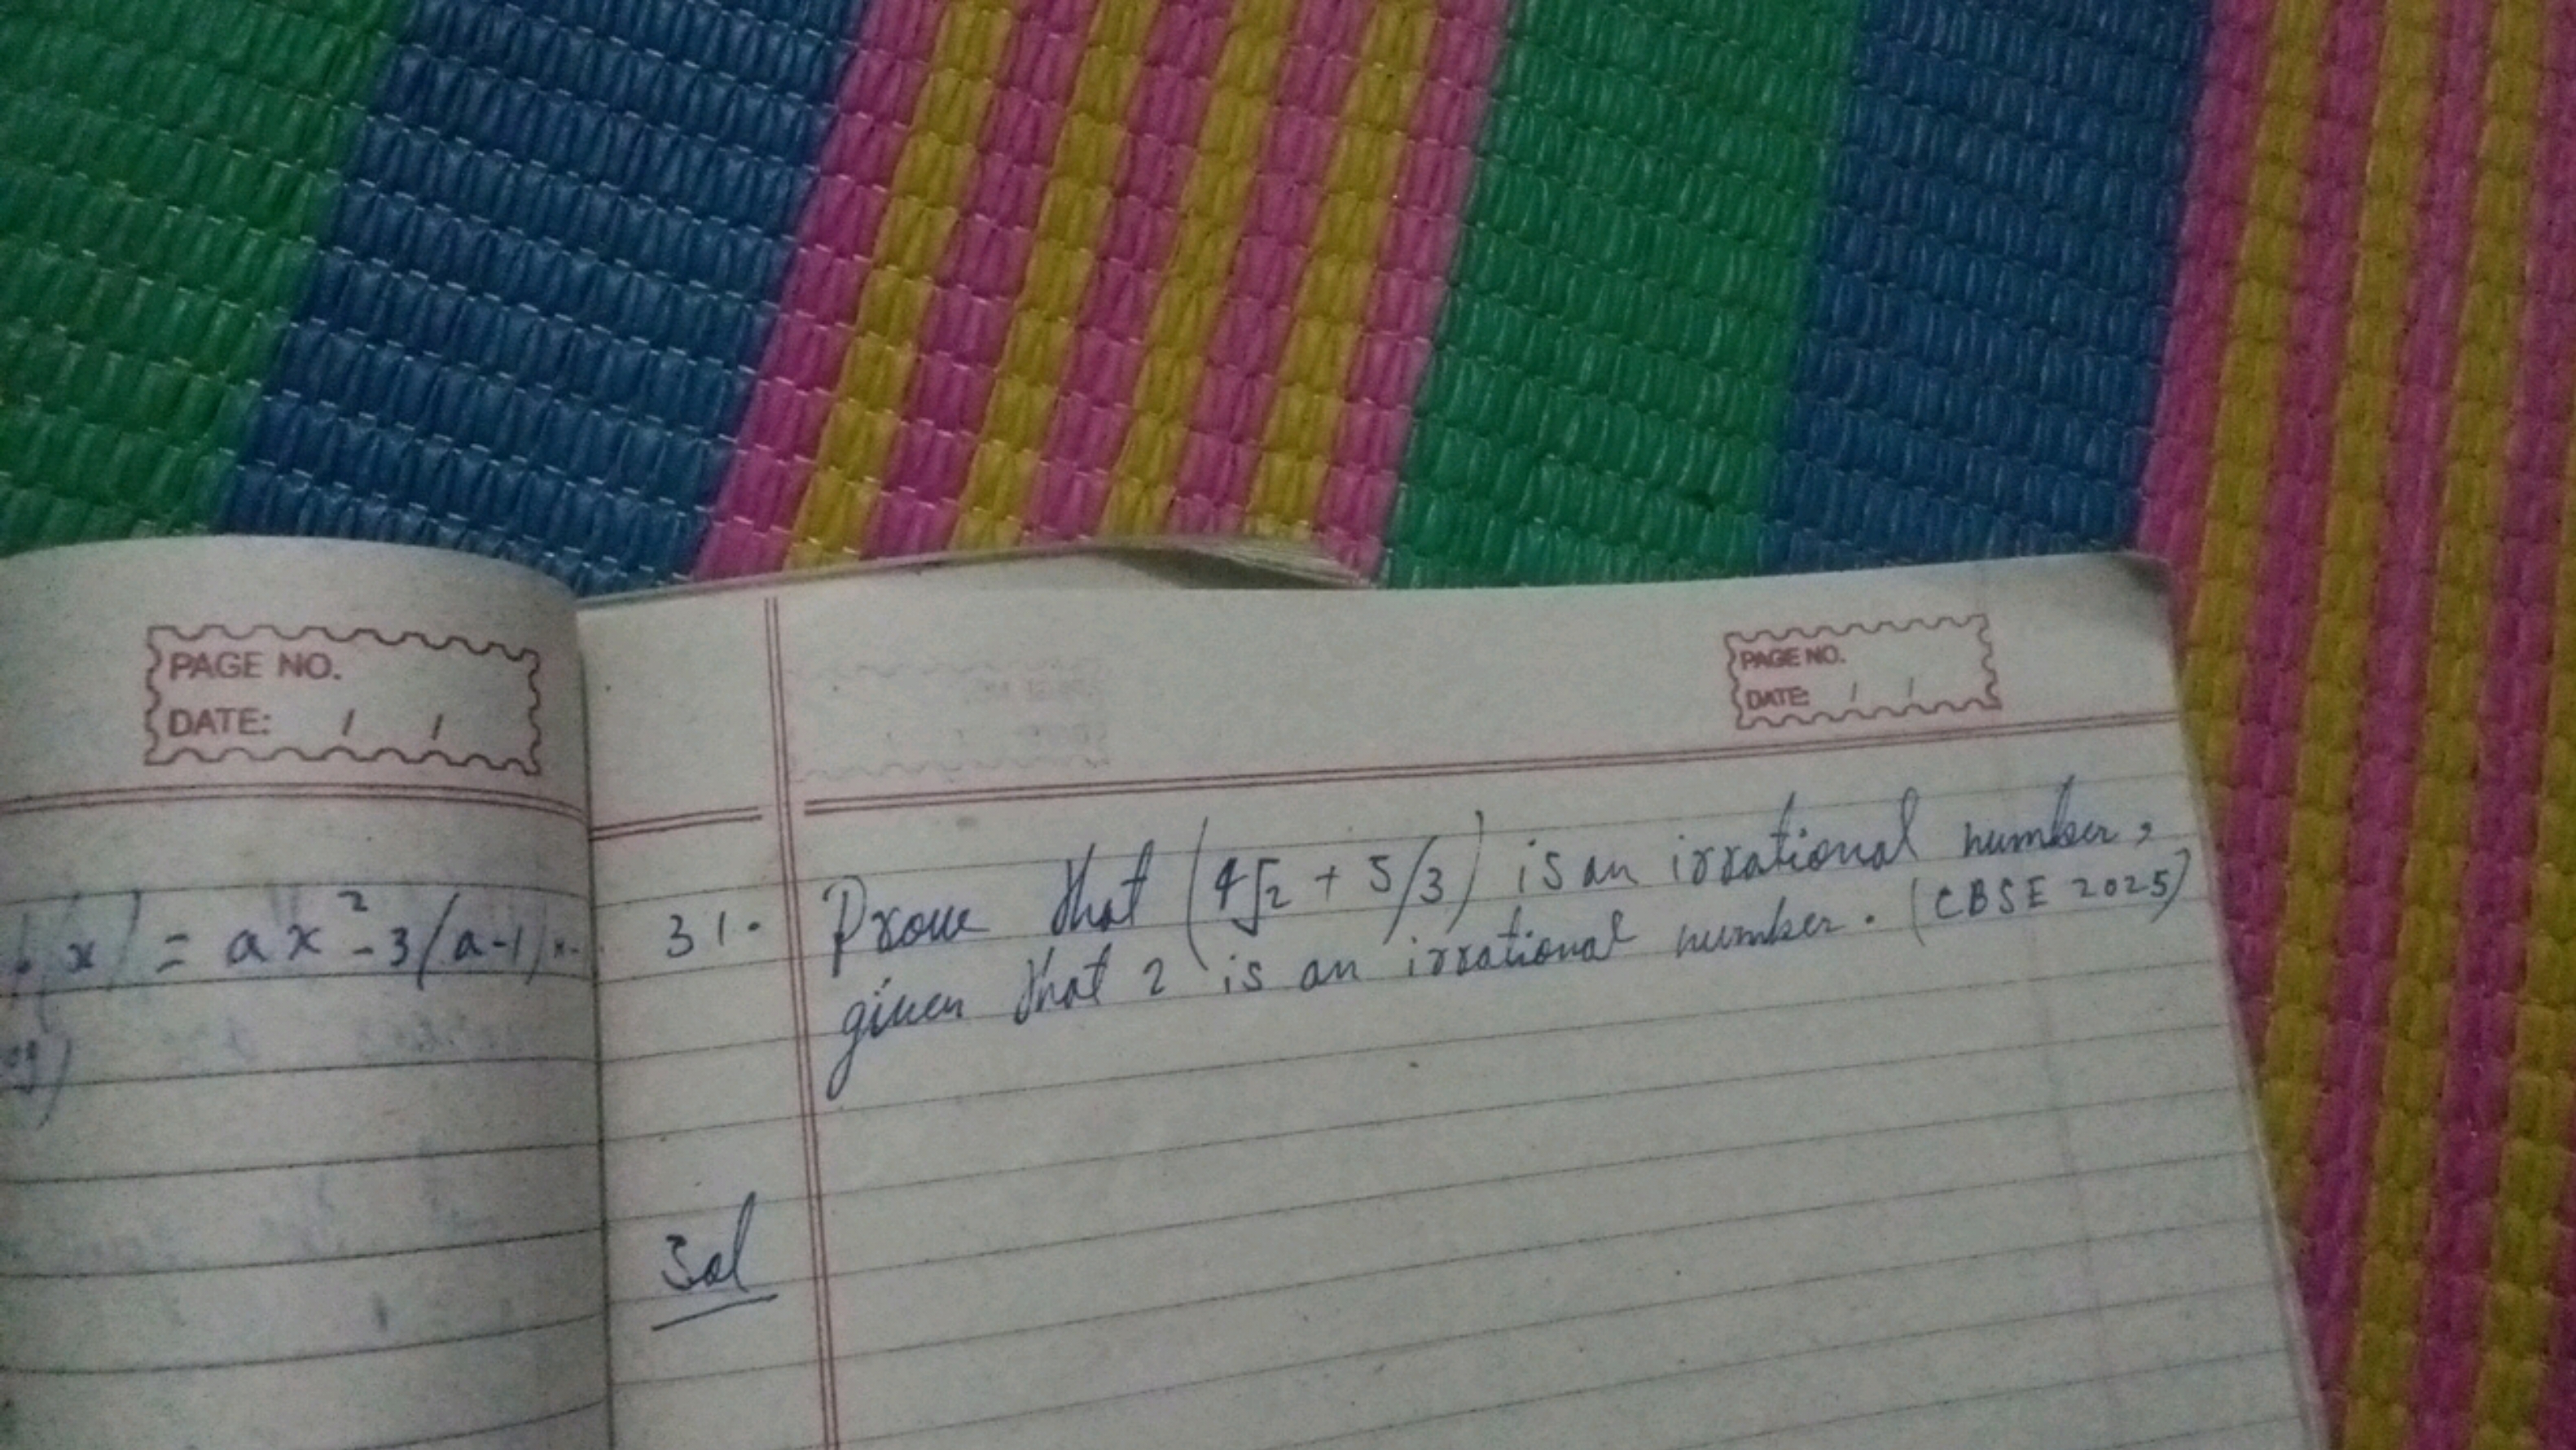 PAGE NO.
DATE: / /
x) = ax²-3(a-1)x-
PAGE NO.
DATE: / /
31. Prove that (4√2 + 5/3) is an irrational number,
given that 2 is an irrational number. (CBSE 2025)
Sol